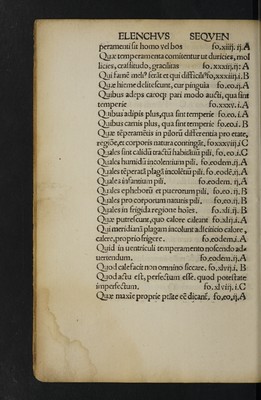 ELENCHVS SEQVEN
peramenti sit homo vel bos fo.xliij.ij.A
Quæ temperamenta comitentur ut duricies, mol
licies, crassitudo, gracilitas fo.xxxiiij.ij:A
Qui famē meli⁹ ferāt et qui difficili⁹ fo,xxxiiij.i.B
Quæ hieme delitescunt, cur pinguia fo.eo.ij.A
Quibus adeps caroq; pari modo aucti, qua sint
temperie fo.xxxv.i.A
Quibus adipis plus, qua sint temperie fo.eo.i.A
Quibus carnis plus, qua sint temperie fo.eo.i.B
Quæ tēperamētis in pilorū differentia pro etate,
regiōe, et corporis natura contingāt, fo.xxxvi.ij.C
Quales sint calidū tractū habitātiū pili, fo, eo.i.C
Quales humidū incolentium pili. fo.eodem.ij.A
Quales tēperatā plagā incolētiū pili. fo.eodē.ij.A
Quales infantium pili. fo.eodem.ij.A
Quales epheborū et puerorum pili. fo.eo.ij.B
Quales pro corporum naturis pili. fo,eo.ij.B
Quales in frigida regione hoies. fo.xli.ij.B
Quæ putrescunt, quo calore caleant fo.xlij.i.A
Qui meridianā plagam incolunt aditicio calore,
calere, proprio frigere. fo.eodem.i.A
Quid in uentriculi temperamento noscendo ad-
uertendum. fo,eodem.ij.A
Quod calefacit non omnino siccare. fo.xlvij.i.B
Quod actu est, perfectum esse. quod potestate
imperfectum. fo.xlviij.i.C
Quæ maxie proprie ptāte eē dicant'. fo,eo,ij,A